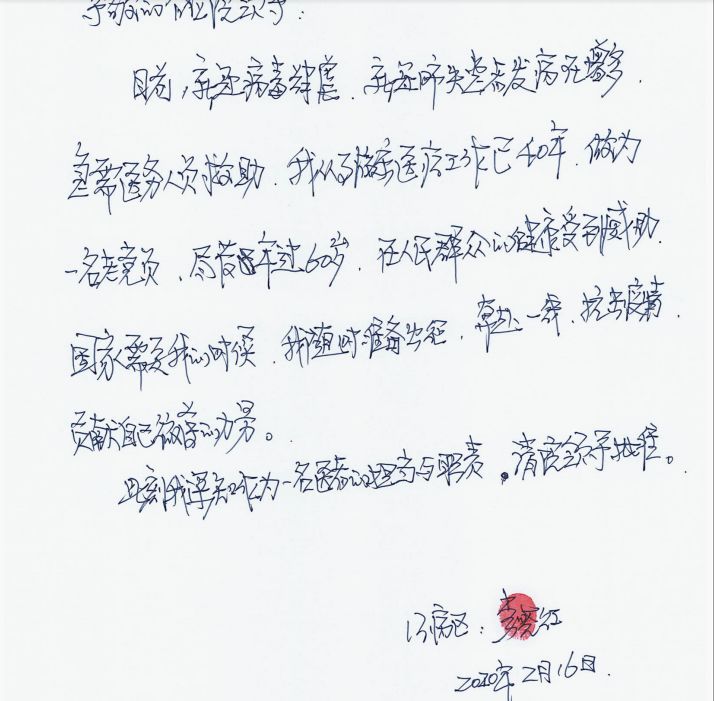 尊敬的 院领导：
目前，新冠病毒肆虐，新冠肺炎患者发病在增多，
急需医务人员救助，我从事临床医疗工作已40年，做为
一名老党员，尽管已年过60岁，在人民群众的健康受到威胁，
国家需要我的时候，我随时准备出征，奔赴一线，抗击疫情，
贡献自己微薄的力量。
此刻我深知作为一名医者的担当与职责，请 领导批准。
13病区：李 红
2020年2月16日.